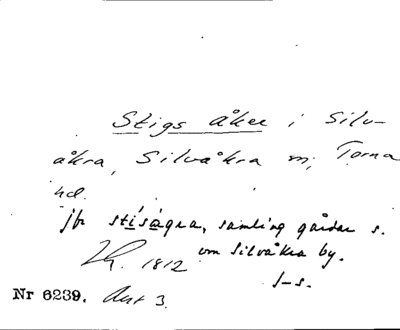 Stigs åker i Silv-
åkra, Silvåkra sn, Torna
hd.
jfr stísågra, samling gårdar s.
om Silvåkra by.
1812
S-s.
Nr 6239. Ant 3.